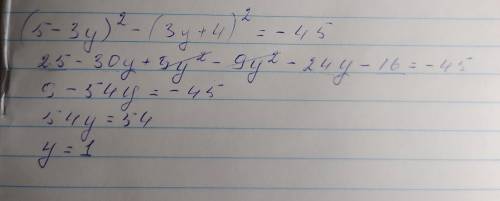 (5-3y)² - (3y+4)² = -45
25-30y+9y² - 9y² - 24y - 16 = -45
9 - 54y = -45
54y = 54
y = 1